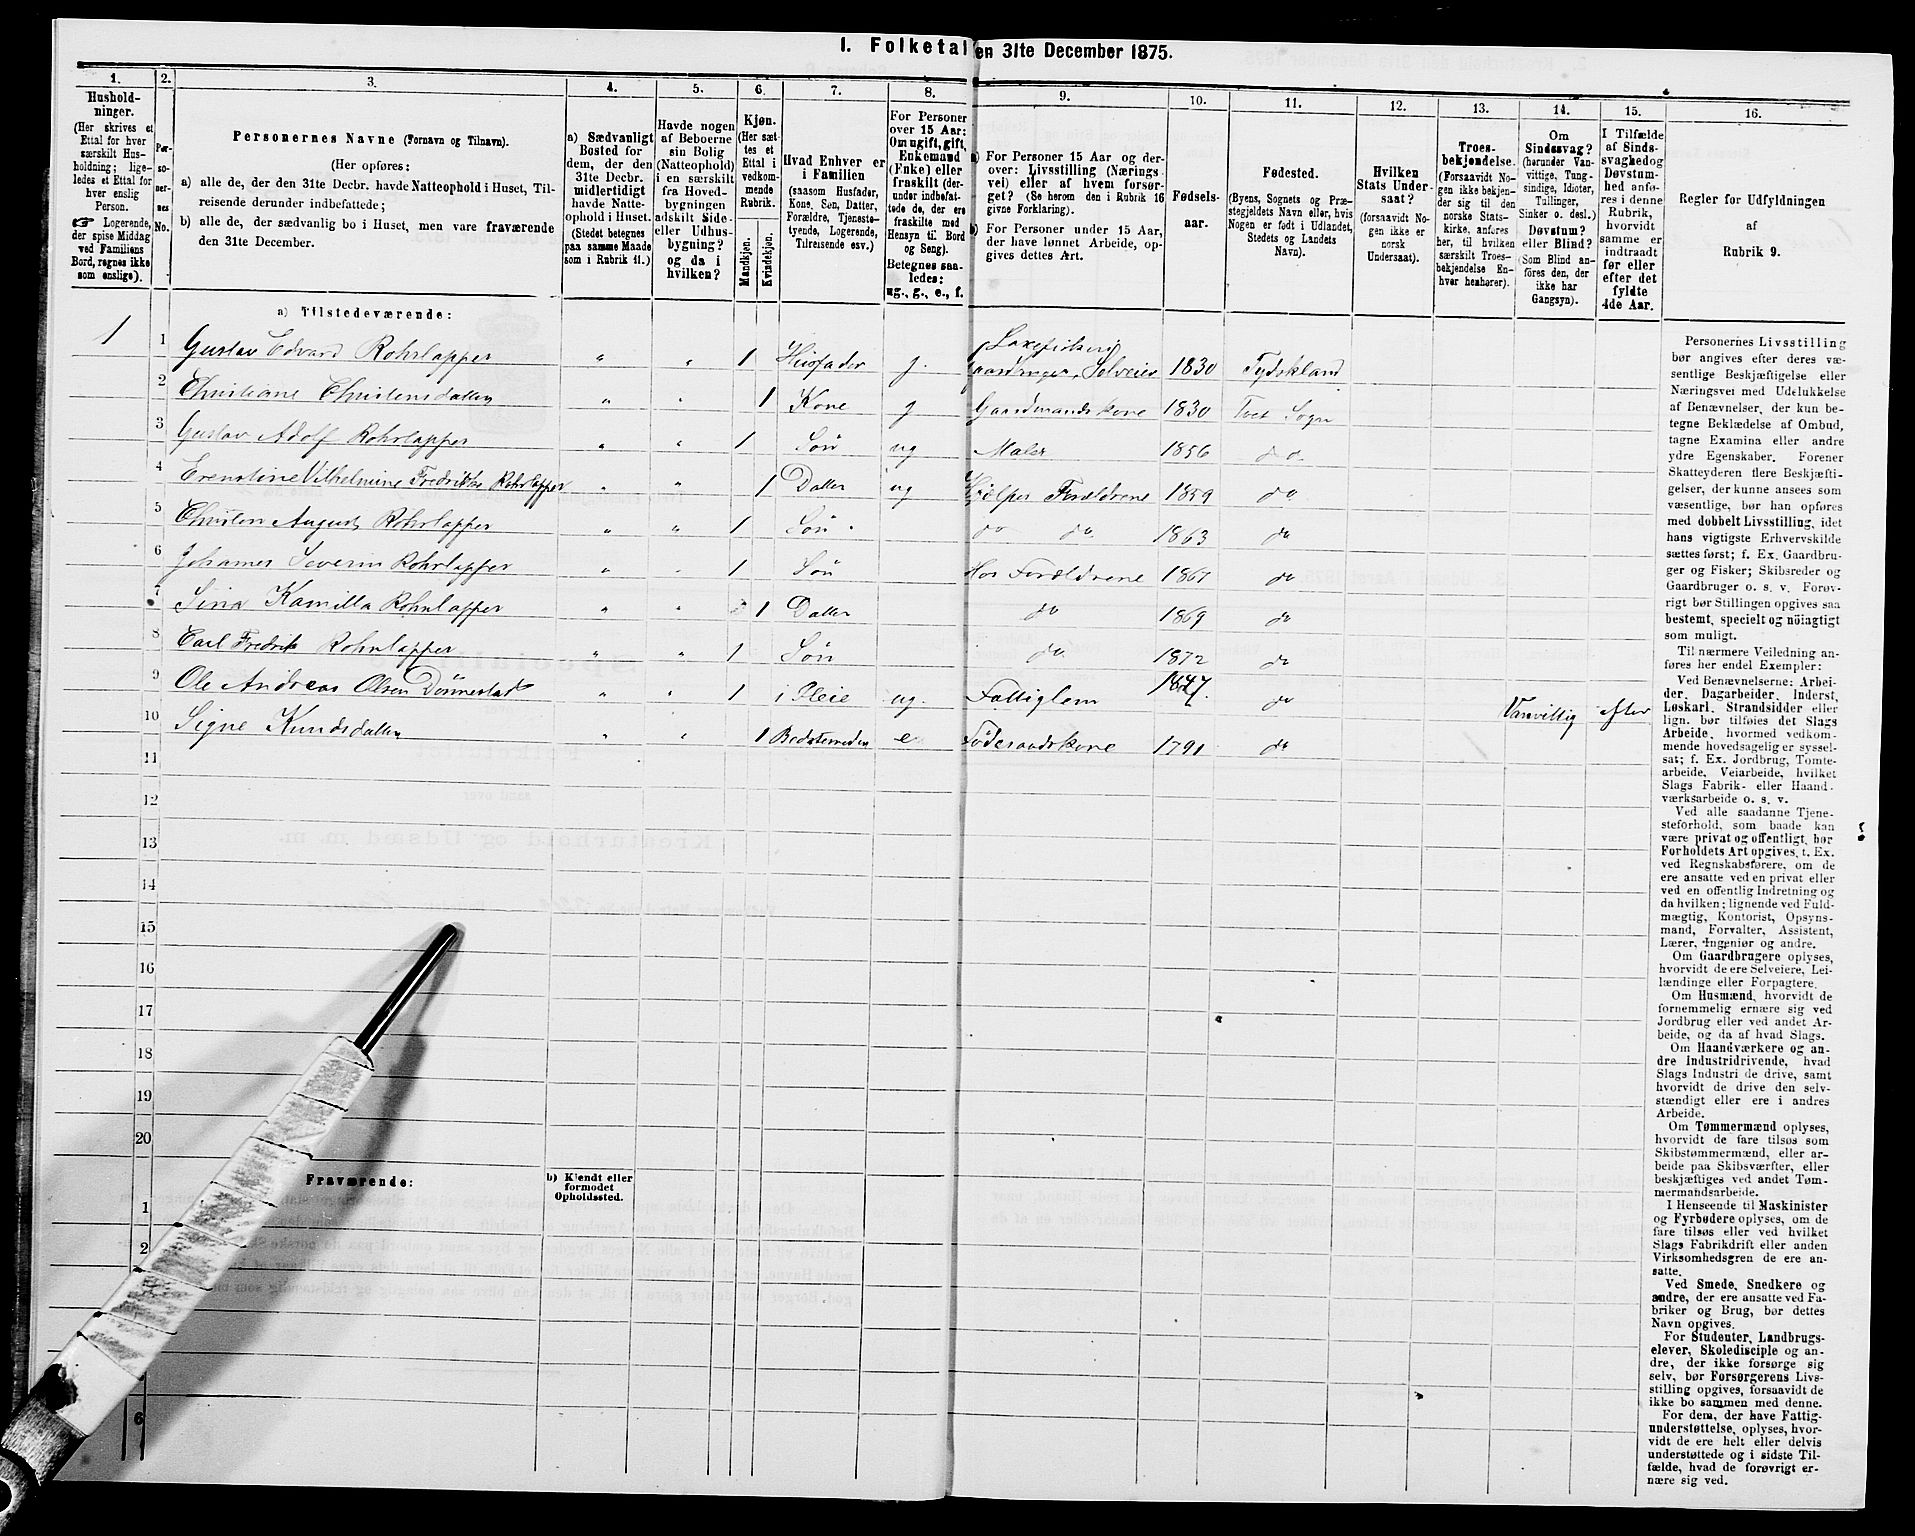 I. Folketal den 31te December 1875.
1.
Hushold-
ninger.
(Her skrives et
Ettal for hver
særskilt Hus-
holdning; lige-
ledes et Ettal for
hver enslig
Person.
☞ Logerende,
der spise Middag
ved Familiens
Bord, regnes ikke
som enslige).
2.
Per-
so-
ner-
nes
No.
3.
Personernes Navne (Fornavn og Tilnavn).
(Her opføres:
a) alle de, der den 31te Decbr. havde Natteophold i Huset, Til-
reisende derunder indbefattede;
b) alle de, der sædvanlig bo i Huset, men vare fraværende
den 31te December.
4.
a) Sædvanligt
Bosted for
dem, der den
31te Decbr.
midlertidigt
havde Natte-
ophold i Huset.
(Stedet betegnes
paa samme Maade
som i Rubrik 11.)
5.
Havde nogen
af Beboerne
sin Bolig
(Natteophold)
i en særskilt
fra Hoved-
bygningen
adskilt Side-
eller Udhus-
bygning?
og da i
hvilken?
6.
Kjøn.
(Her sæt-
tes et
Ettal i
vedkom-
mende
Rubrik.
Mandkjøn.
Kvindekjøn.
7.
Hvad Enhver er
i Familien
(saasom Husfader,
Kone, Søn, Datter,
Forældre, Tjeneste-
tyende, Logerende,
Tilreisende osv.)
8.
For Personer
over 15 Aar:
Om ugift, gift,
Enkemand
(Enke) eller
fraskilt (der-
under indbefat-
tede de, der ere
fraskilte med
Hensyn til Bord
og Seng).
Betegnes saa-
ledes:
ug., g., e., f.
9.
a) For Personer 15 Aar og der-
over: Livsstilling (Nærings
vei) eller af hvem forsør-
get? (Se herom den i Rubrik 16
givne Forklaring).
b) For Personer under 15 Aar,
der have lønnet Arbeide, op-
gives dettes Art.
10.
Fødsels-
aar.
11.
Fødested.
(Byens, Sognets og Præ-
stegjeldets Navn eller, hvis
Nogen er født i Udlandet,
Stedets og Landets
Navn).
12.
Hvilken
Stats Under-
saat?
(forsaavidt No-
gen ikke er
norsk
Undersaat).
13.
Troes-
bekjendelse.
(Forsaavidt No-
gen ikke bekjen-
der sig til den
norske Stats-
kirke, anføres
her, til hvilken
særskilt Troes-
bekjendelse En-
hver henhører).
14.
Om
Sindssvag?
(herunder Van-
vittige, Tung-
sindige, Idioter,
Tullinger,
Sinker o. desl.)
Døvstum?
eller Blind?
(Som Blind an-
føres den, der
ikke har
Gangsyn).
15.
I Tilfælde
af Sinds-
svaghed og
Døvstum-
hed anfø-
res i denne
Rubrik,
hvorvidt
samme er
indtraadt
før eller
efter det
fyldte
4de Aar.
16.
Regler for Udfyldningen
af
Rubrik 9.
a) Tilstedeværende:
1 1 Gustav Edvard Rohrlapper " " 1 Husfader g. Laxefiskeri Gaardbruger, Selveier 1830 Tydskland
2 Christiane Christensdatter " " 1 Kone g Gaardmandskone 1830 Tvet Sogn
3 Gustav Adolf Rohrlapper " " 1 Søn ug Maler 1856 do
4 Ernstine Vilhelmine Fredrikke Rohrlapper " " 1 Datter ug Hjelper Forældrene 1859 do
5 Christen August Rohrlapper " " 1 Søn do do 1863 do
6 Johannes Severin Rohrlapper " " 1 Søn Hos Forældrene 1867 do
7 Sina Kamilla Rohrlapper " " 1 Datter do 1869 do
8 Carl Fredrik Rohrlapper " " 1 Søn do 1872 do
9 Ole Andreas Olsen Dønnestad " " 1 i Pleie ug. Fattiglem 1847. do Vanvittig efter
10 Signe Knudsdatter " " 1 Bedstemoder e Føderaadskone 1791 do
11
12
13
14
15
16
17
18
19
20
Fraværende:
b) Kjendt eller
formodet
Opholdssted.
1
2
6
Personernes Livsstilling
bør angives efter deres væ-
sentlige Beskjæftigelse eller
Næringsvei med Udelukkelse
af Benævnelser, der kun be-
tegne Beklædelse af Ombud,
tagne Examina eller andre
ydre Egenskaber. Forener
Skatteyderen flere Beskjæfti-
gelser, der kunne ansees som
væsentlige, bør han opføres
med dobbelt Livsstilling, idet
hans vigtigste Erhvervskilde
sættes først; f. Ex. Gaardbru-
ger og Fisker; Skibsreder og
Gaardbruger o. s. v. Forøv-
rigt bør Stillingen opgives saa
bestemt, specielt og nøiagtigt
som muligt.
Til nærmere Veiledning an-
føres her endel Exempler:
Ved Benævnelserne: Arbei-
der, Dagarbeider, Inderst,
Løskarl, Strandsidder eller
lign. bør tilføies det Slags
Arbeide, hvormed vedkom-
mende hovedsagelig er syssel-
sat; f. Ex. Jordbrug, Tomte-
arbeide, Veiarbeide, hvilket
Slags Fabrik- eller Haand-
værksarbeide o. s. v.
Ved alle saadanne Tjene-
steforhold, som baade kan
være privat og offentligt, bør
Forholdets Art opgives, t. Ex.
ved Regnskabsførere, om de
ere ansatte ved en privat eller
ved en offentlig Indretning og
da hvilken; lignende ved Fuld-
mægtig, Kontorist, Opsyns-
mand, Forvalter, Assistent,
Lærer, Ingeniør og andre.
Om Gaardbrugere oplyses,
hvorvidt de ere Selveiere, Lei-
lændinge eller Forpagtere.
Om Husmænd, hvorvidt de
fornemmelig ernære sig ved
Jordbrug eller ved andet Ar-
beide, og da af hvad Slags.
Om Haandværkere og an-
dre Industridrivende, hvad
Slags Industri de drive, samt
hvorvidt de drive den selv-
stændigt eller ere i andres
Arbeide.
Om Tømmermænd oplyses,
hvorvidt de fare tilsøs som
Skibstømmermænd, eller ar-
beide paa Skibsværfter, eller
beskjæftiges ved andet Tøm-
mermandsarbeide.
I Henseende til Maskinister
og Fyrbødere oplyses, om de
fare tilsøs eller ved hvilket
Slags Fabrikdrift eller anden
Virksomhedsgren de ere an-
satte.
Ved Smede, Snedkere og
andre, der ere ansatte ved Fa-
briker og Brug, bør dettes
Navn opgives.
For Studenter, Landbrugs-
elever, Skoledisciple og an-
dre, der ikke forsørge sig
selv, bør Forsørgerens Livs-
stilling opgives, forsaavidt de
ikke bo sammen med denne.
For dem, der have Fattig-
understøttelse, oplyses, hvor-
vidt de ere helt eller delvis
understøttede og i sidste Til-
fælde, hvad de forøvrigt er-
nære sig ved.